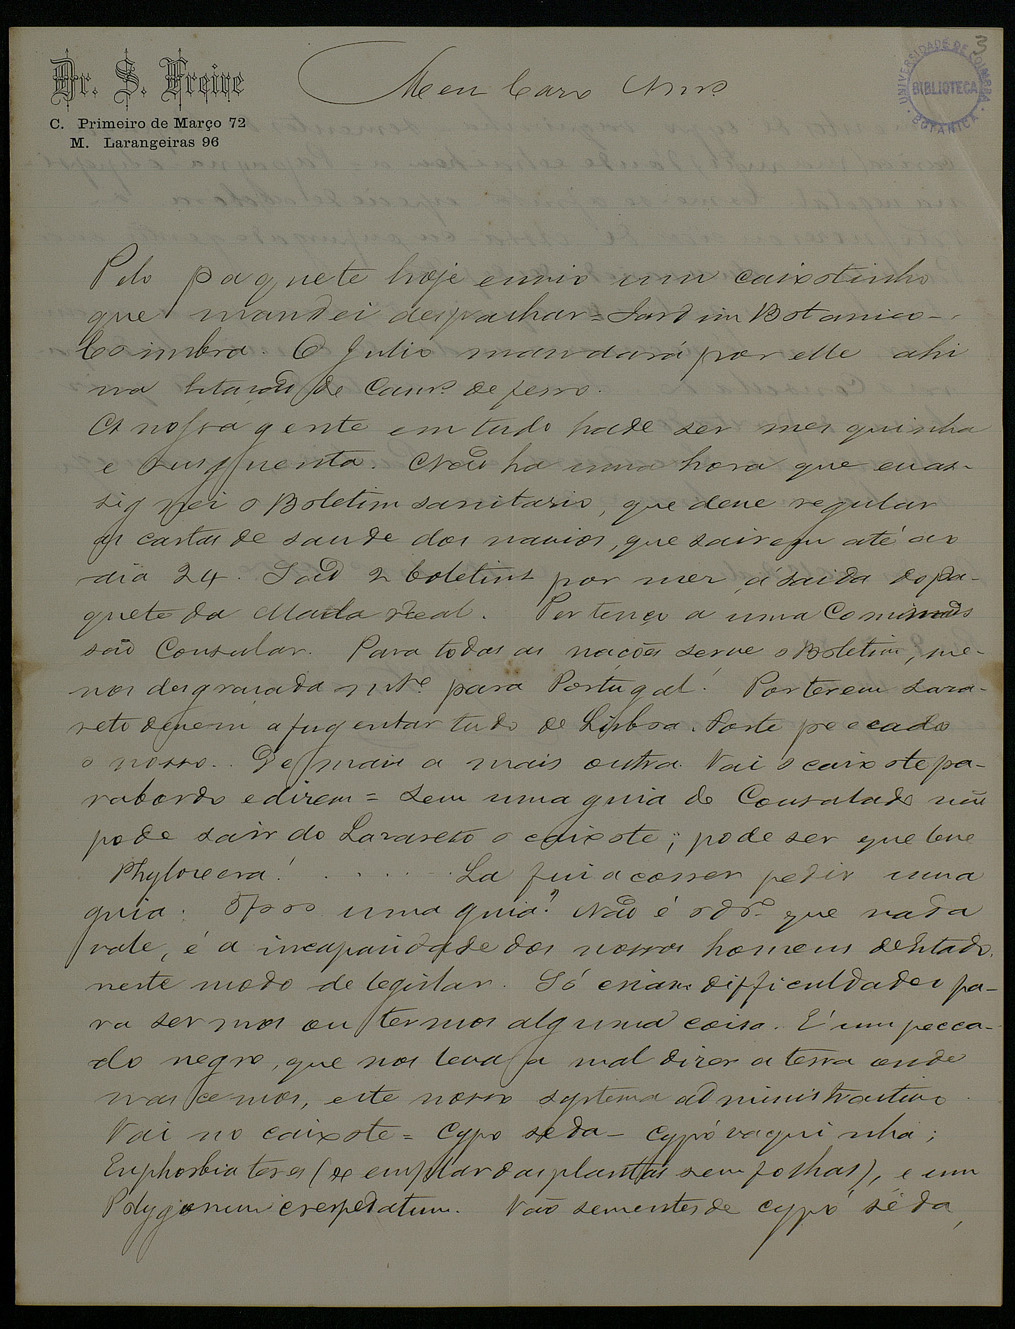 3
UNIVERSIDADE DE COIMBRA
BIBLIOTECA
BOTANICA
Dr. S. Freire
C. Primeiro de Março 72
M. Larangeiras 96
Meu Caro
Pelo paquete hoje envio um caixotinho
que mandei despachar = Jardim Botanico -
Coimbra. O Julio mandará por elle ahi
na de Camo. de ferro.
A nossa gente em tudo hade ser mesquinha
e . Não ha uma hora que eu as-
signei o Boletim sanitario, que deve regular
as cartas de saude dos navios, que sairem até ao
dia 24. São 2 boletins por mez, á saida do pa-
quete da Malla real. Pertenço a uma Commis
são Consular. Para todas as nações serve o Boletim, me-
nos desgraçadamte para Portugal! Por terem Laza-
reto devem afugentar tudo de Lisboa. Forte peccado
o nosso.. De mais a mais outra. Vai o caixote pa-
ra bordo e dizem = sem uma guia do Consulado não
pode sair do Lazareto o caixote; pode ser que leve
Phyloxera! . . . . . . La fui a correr pedir uma
guia. uma guia? Não é que nada
vale, é a incapacidade dos nossos homens d'Estado,
neste modo de legislar. Só criam difficuldades pa-
ra sermos ou termos alguma coisa. É um pecca-
do negro, que nos leva a mal dizer a terra onde
nascemos, este nosso systema administrativo.
Vai no caixote = Cypó seda - cypó vaquinha;
Euphorbia teres (exemplar das plantas sem folhas), e um
Polygonum . Vão sementes de cypó sêda,